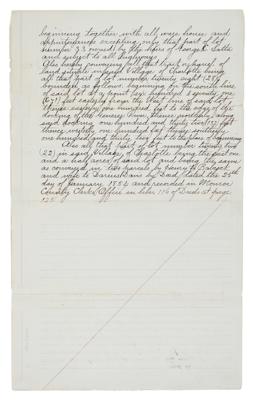 beginning together with all ways house and
appurtenances excepting only that part of lot
number 23 owned by the heirs of George Latta
and subject to all highways
Also hereby conveying all that tract or parcel of
land situate in said Village of Charlotte being
all that part of lot number twenty eight (28)
bounded as follows beginning on the south line
of said lot at a point two hundred & seventy one
(271) feet easterly from the West line of said lot
thence easterly one hundred feet to the edge of the
docking of the Genesee River, thence northerly along
said docking one hundred and thirty two (132) feet
thence westerly one hundred feet thence southerly
one hundred and thirty two feet to the place of beginning
Also all that part of lot number twenty two
(22) in said Village of Charlotte being the just one
and a half acres of said lot and being the same
as conveyed in two parcels by Henry
and wife to Darius by Deed dated the 25th
day of January 1854 and recorded in Monroe
County Clerks Office in liber 116 of Deeds at page
125